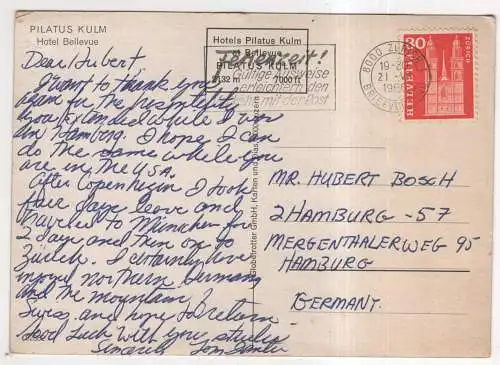 PILATUS KULM
Hotel Bellevue
Hotels Pilatus Kulm
Bellevue
PILATUS KULM
2132 m 7000 ft
Ausweise
erleichtern den
mit der Post
8000 ZÜR
19-20
21.
196
BRIEFV
30
HELVETIA
ZÜRICH
Dear Hubert,
I want to thank you
again for the hospitality
you extended while I was
in Hamburg. I hope I can
do the same while you
are in the USA.
After Copenhagen I took
four days leave and
traveled to München for
2 days and then on to
Zurich. I certainly have
enjoyed northern Germany
and the mountain
Swiss, and hope to return
Good Luck with your studies
Sincerely Tom
Globetrotter GmbH, Karten und Dias, Luzern
MR. HUBERT BOSCH
2 HAMBURG - 57
MERGENTHALERWEG 95
HAMBURG
GERMANY.